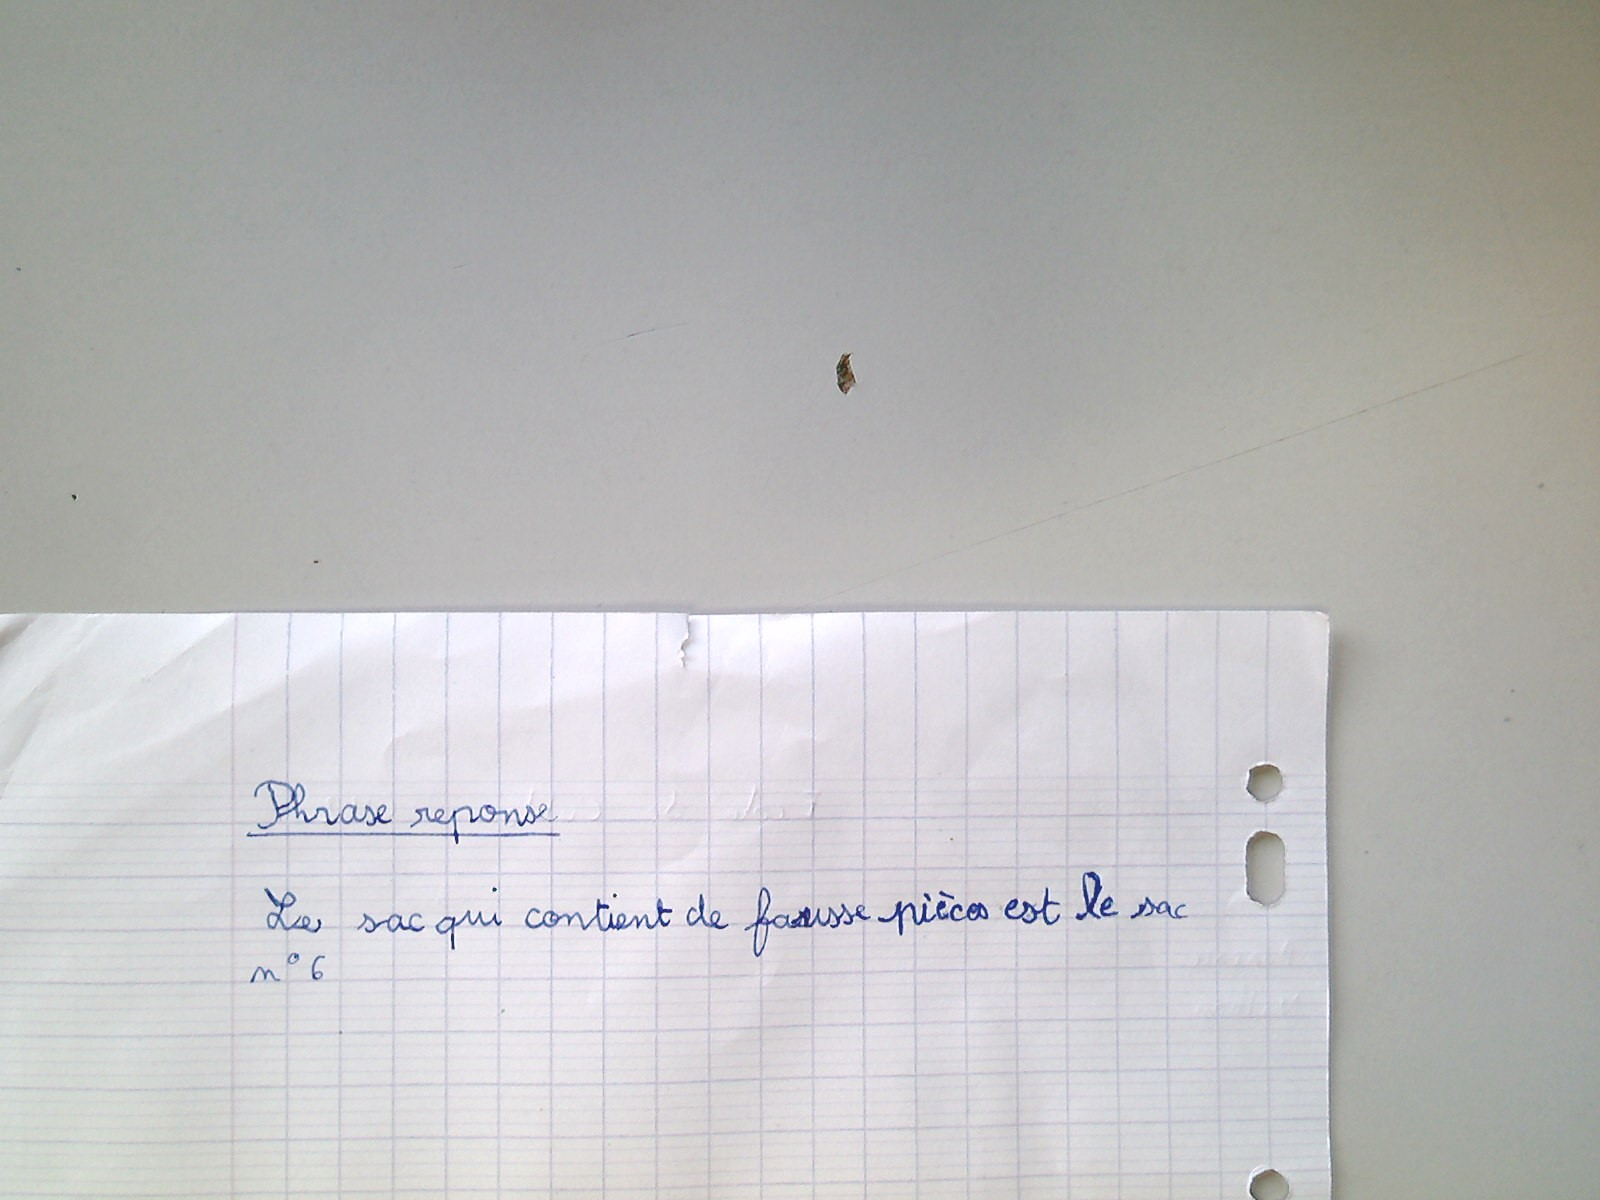 Phrase reponse
Le sac qui contient de fausse pièces est le sac
n° 6